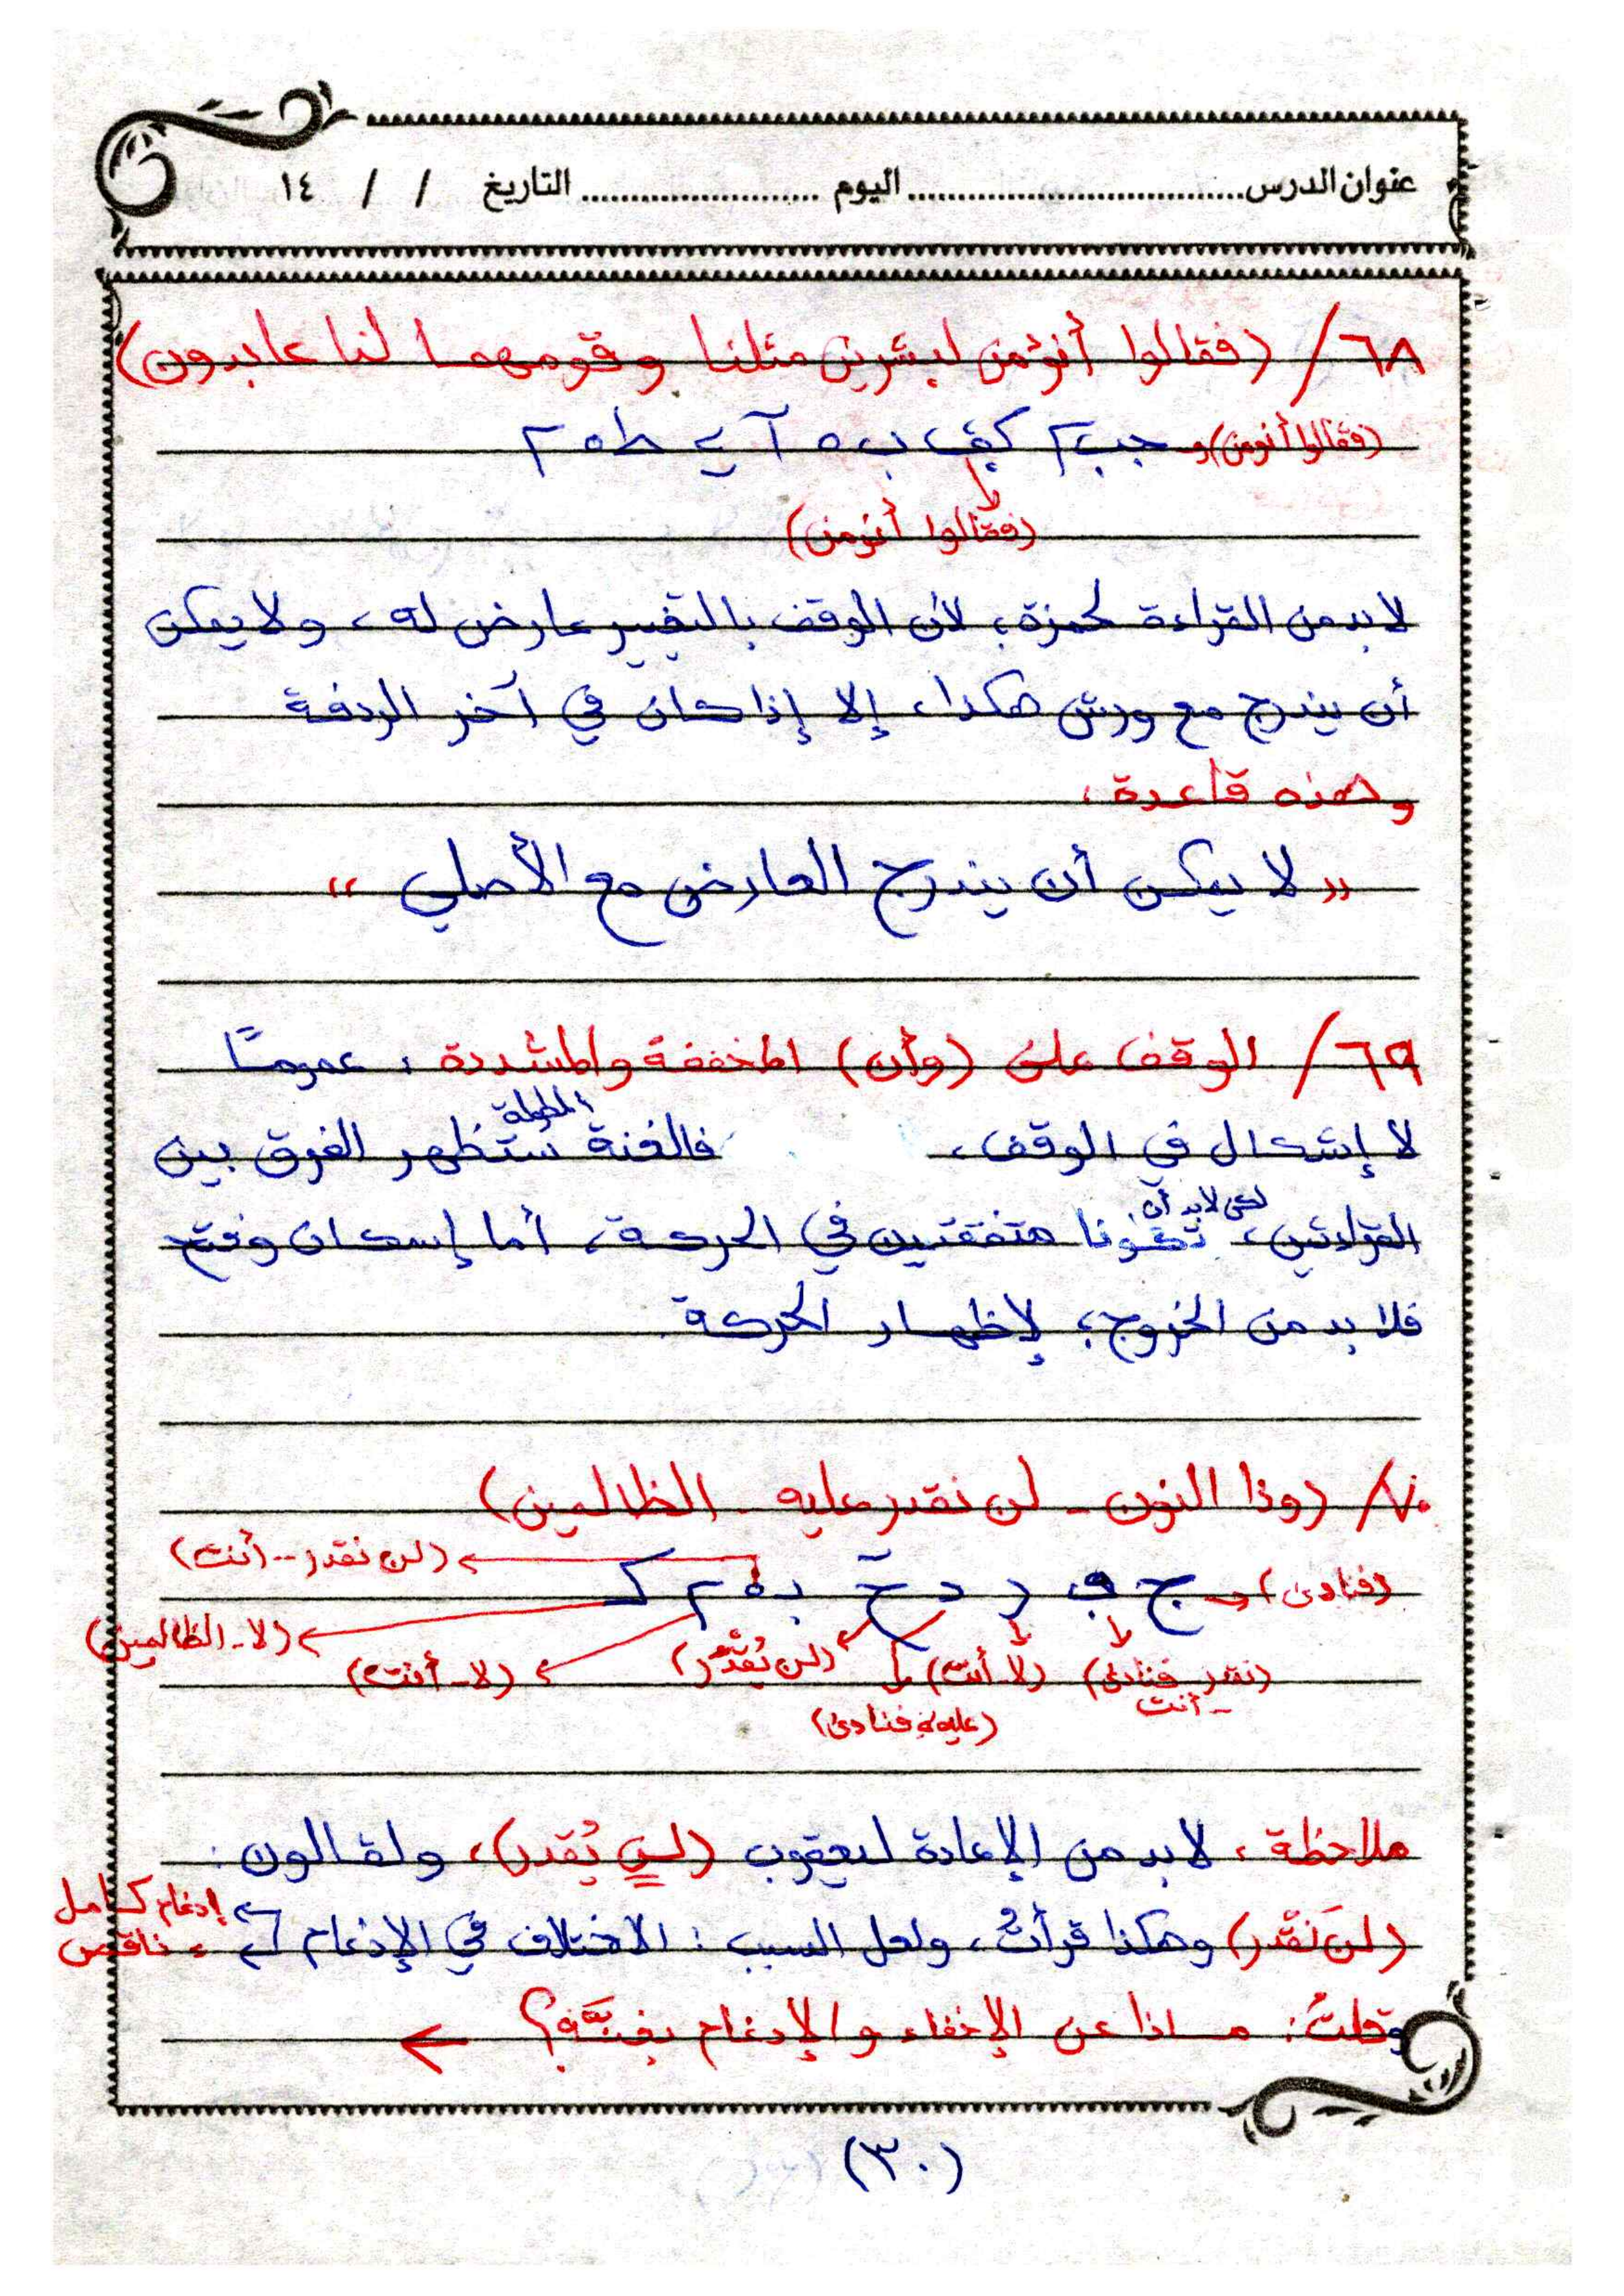 عنوان الدرس........................ اليوم .................. التاريخ / / ١٤
٦٨/ (فقالوا أنؤمن لبشرين مثلنا وقومهما لنا عابدون)
(فقالوا أنومن)
(فقالوا أنؤمن)
لابد من القراءة لحمزة؛ لأن الوقف بالتغيير عارض له، ولا يمكن
أن يندرج مع ورش هكذا، إلا إذا كان في آخر الردفة
وهذه قاعدة:
"لا يمكن أن يندرج العارض مع الأصلي"
٦٩/ الوقف على (وأن) المخففة والمشددة: عمومًا
لا إشكال في الوقف، فالغنة المطولة ستظهر الفرق بين
القراءتين، لكن لابد أن تكونا متفقتين في الحركة، أما إسكان وفتح
فلا بد من الخروج؛ لإظهار الحركة.
٧٠/ (وذا النون - لن نقدر عليه - الظالمين)
(لن نقدر -- أنت)
(فنادى)
(لا - الظالمين)
(نقدر فنادى - أنت) (لا - أنت) (لن يُقْدَر) (لا - أنت)
(عليه فنادى)
ملاحظة: لابد من الإعادة ليعقوب (لن يُقدر)، ولقالون:
(لن نَقْدر) وهكذا قرأتُ، ولعل السبب: الاختلاف في الإدغام إدغام كامل
ناقص
وقلتُ: ماذا عن الإخفاء والإدغام بغنَّة؟ ←
(٣٠)